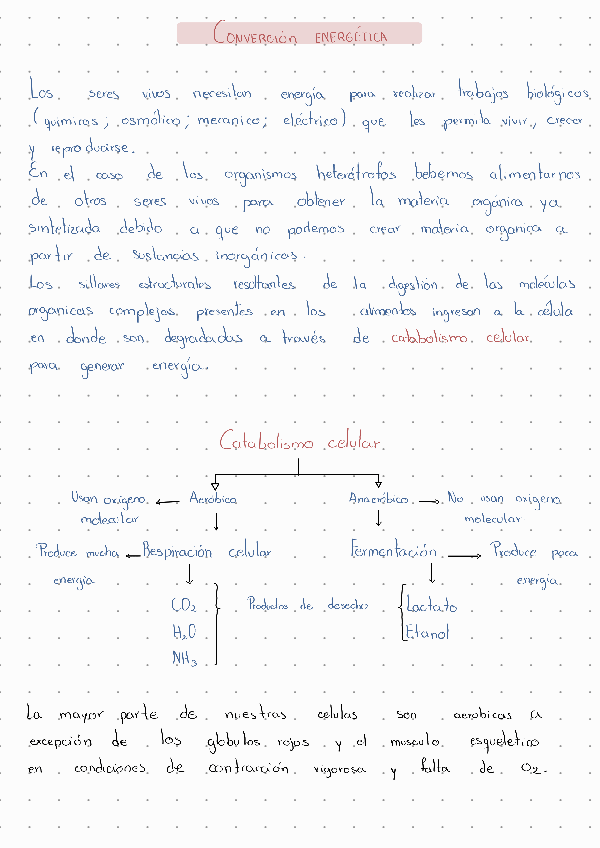 CONVERCIÓN ENERGÉTICA
Los seres vivos necesitan energía para realizar trabajos biológicos
(químicos; osmótico; mecánico; eléctrico) que les permita vivir, crecer
y reproducirse.
En el caso de los organismos heterótrofos bebemos alimentarnos
de otros seres vivos para obtener la materia orgánica ya
sintetizada debido a que no podemos crear materia organica a
partir de sustancias inorgánicos.
Los sillares estructurales resultantes de la digestión de las moléculas
organicas complejas presentes en los alimentos ingresan a la célula
en donde son degradadas a través de catabolismo celular
para generar energía.
Catabolismo celular
Usan oxígeno ← Aeróbica Anaeróbico → No usan oxigeno
molecular molecular
Produce mucha ← Respiración celular Fermentación → Produce poca
energía energía
CO₂ Productos de desecho Lactato
H₂O Etanol
NH₃
La mayor parte de nuestras celulas son aerobicas a
excepción de los glóbulos rojos y el musculo esqueletico
en condiciones de contracción vigorosa y falta de O₂.